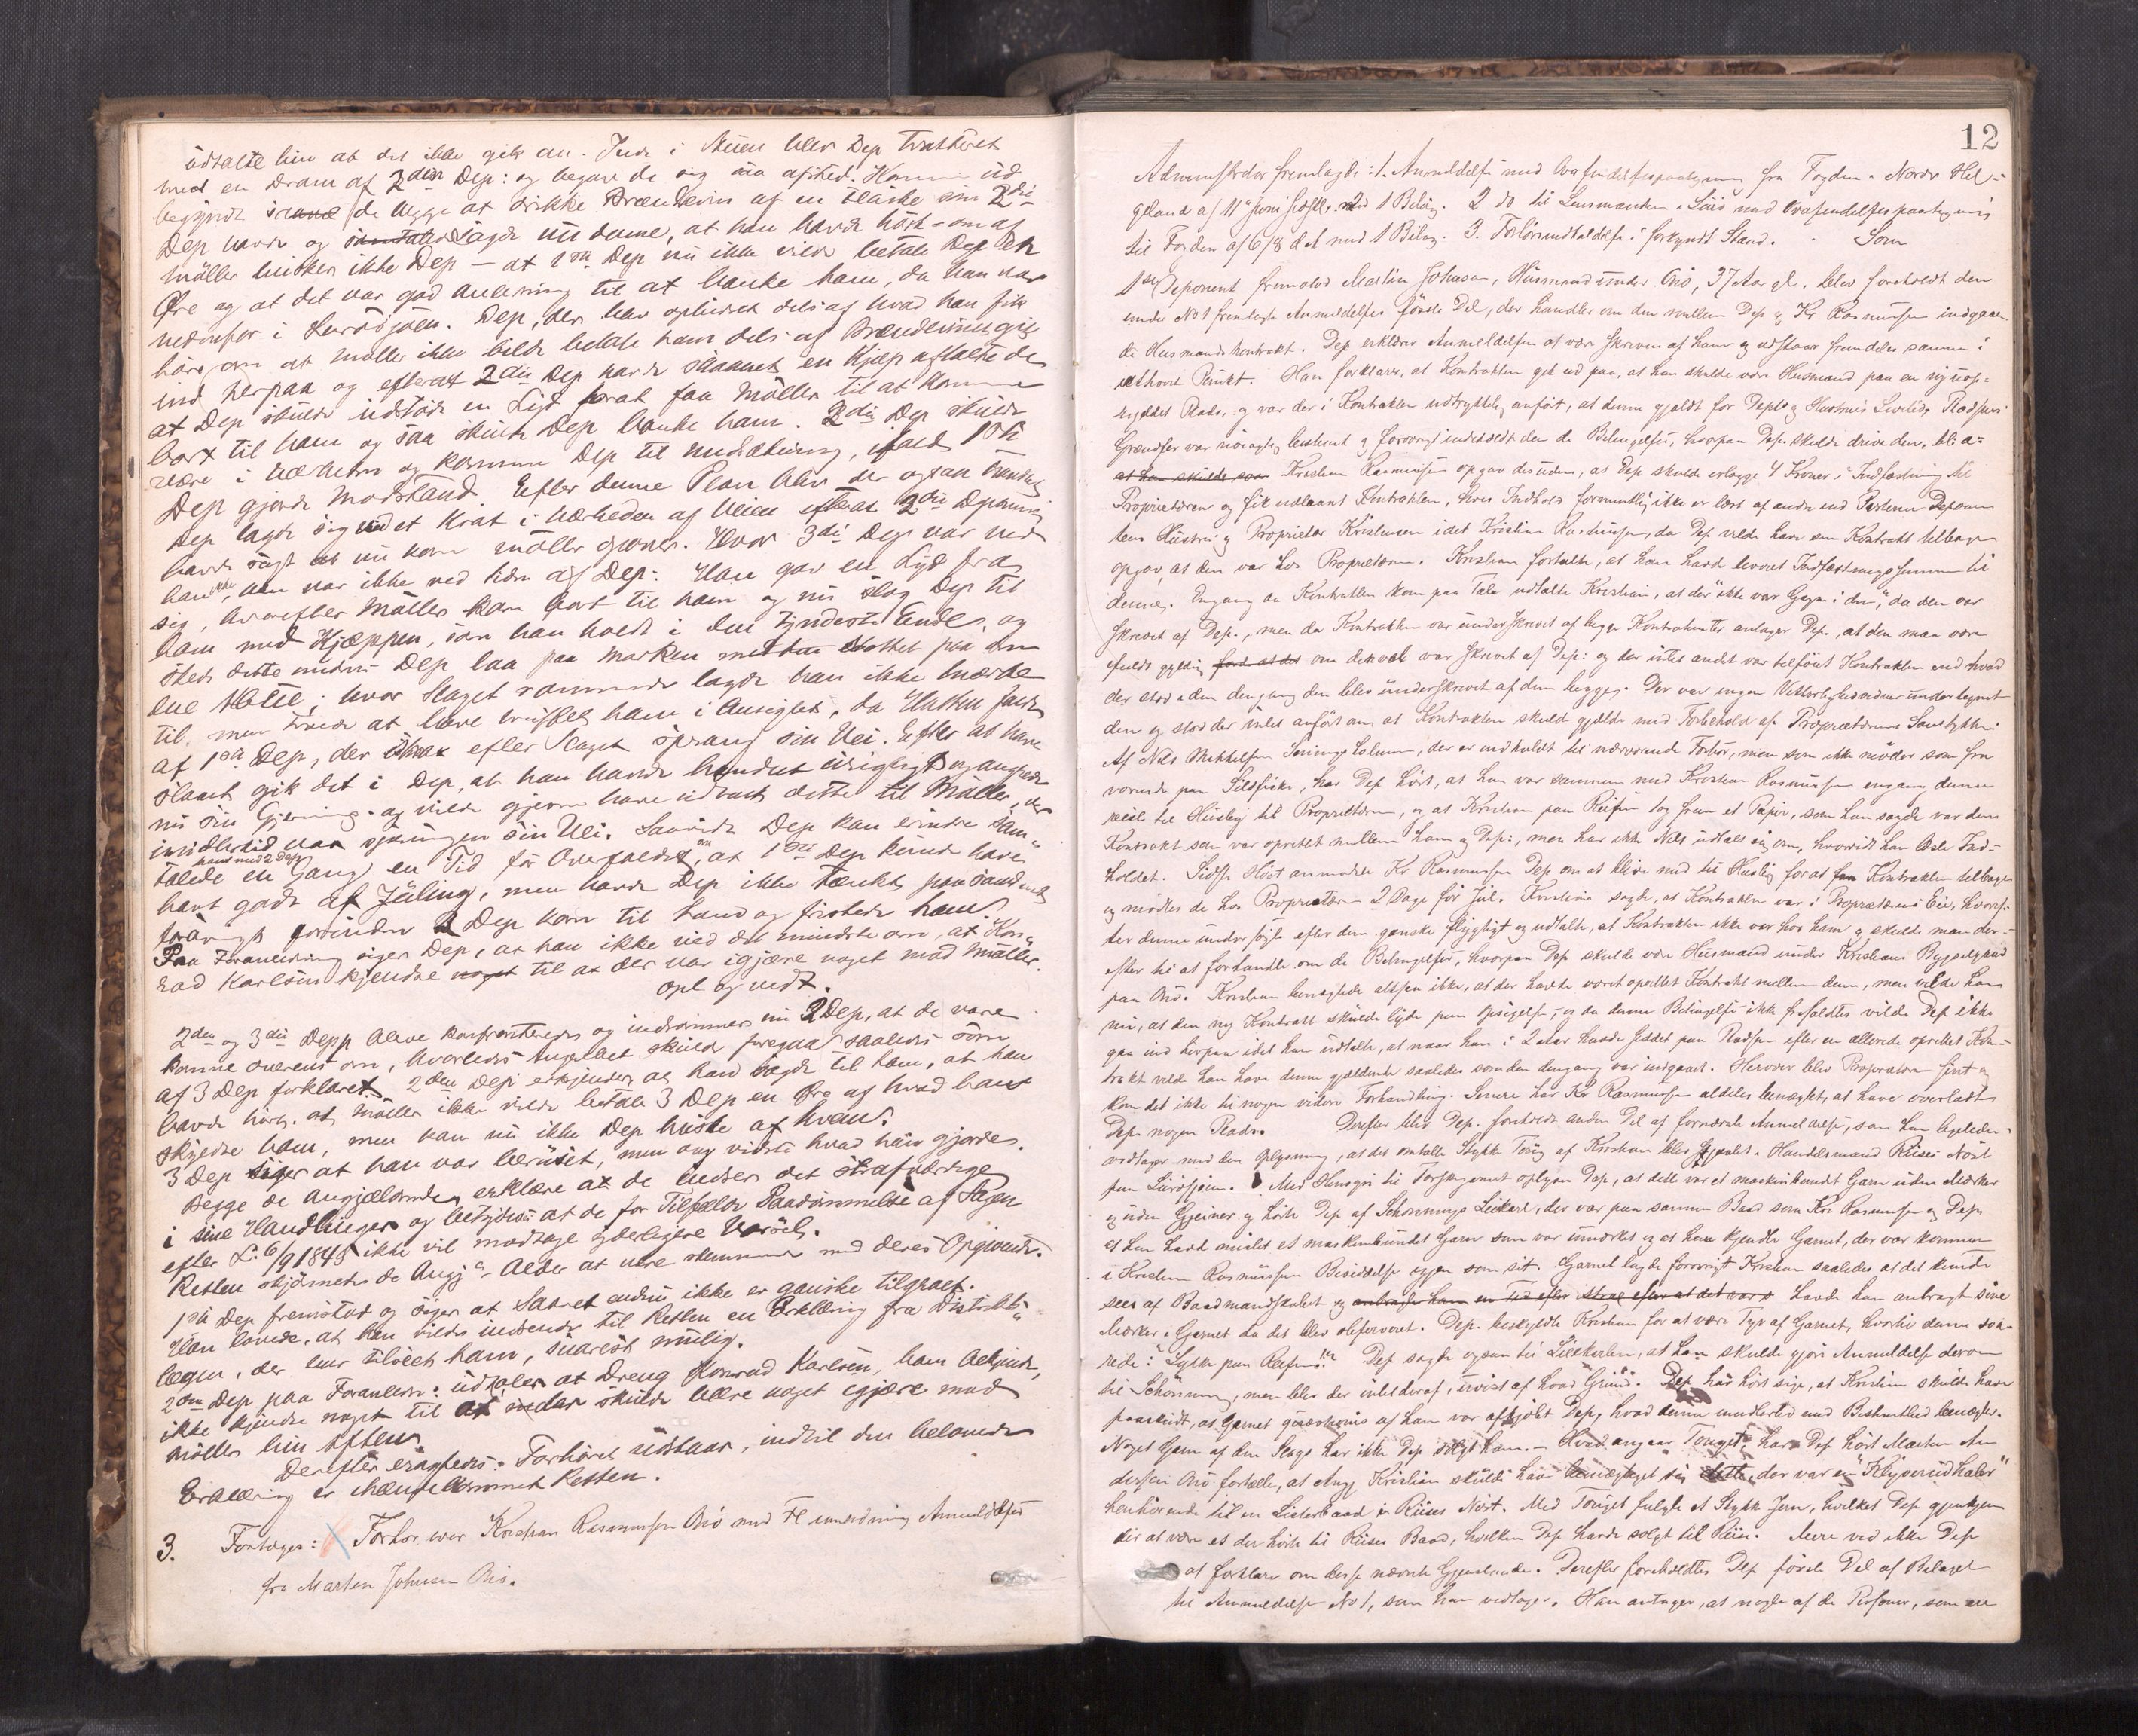 udtalte hin at det ikke gik an. Inde i Stuen blev Dep tracteret
med en Dram af 2den Dep: og begave de sig saa afsted. Komne ud
begyndte de begge at drikke Brændevin af en Flaske som 2den
Dep havde og sagde nu denne, at han havde hørt – om af
Møller husker ikke Dep – at 1ste Dep nu ikke vilde betale Dep en
Øre og at det var god Anledning til at banke ham, da han var
nedenfor i Lurøsjøen. Dep, der blev ophidset dels af hvad han fik
høre om at Møller ikke vilde betale ham dels af Brændevinet gik
ind herpaa og efterat 2den Dep havde skaaret en Kjæp aftalte de
at Dep skulde udstøde en Lyd forat faa Møller til at komme
bort til ham og saa skulde Dep banke ham. 2den Dep skulde
være i Nærheden og komme Dep til Undsætning, ifald 1ste
Dep gjorde Modstand. Efter denne Plan blev der ogsaa
Dep lagde sig ved et Krat i Nærheden af Veien efterat 2den Deponent
havde sagt at nu kom Møller gaaende. Hvor 3die Dep var ved
han ikke, han var ikke ved Siden af Dep: Han gav en Lyd fra
sig, hvorefter Møller kom bort til ham og nu slog Dep til
ham med Kjæppen, som han holdt i den tyndeste Ende, og
skede dette medens Dep laa paa Marken støttet paa den
ene Albue; hvor Slaget rammede lagde han ikke Mærke
til, men troede at have truffet ham i Ansigtet, da Hatten faldt
af 1ste Dep, der strax efter Slaget sprang sin Vei. Efter at have
slaaet gik det i Dep, at han havde handlet urigtigt og angrede
nu sin Gjerning og vilde gjerne have udtalt dette til Møller, der
imidlertid var sprungen sin Vei. Saavidt Dep kan erindre sam-
talede hans med 2 Dep en Gang en Tid før Overfaldet om, at 1ste Dep kunde have
havt godt af Juling, men havde Dep ikke tænkt paa saadant
forøvrigt førinden 2 Dep kom til ham og fristede ham.
Paa Foranledning siger Dep, at han ikke ved det mindste om, at Kon-
rad Karlsen kjendte til at der var igjære noget mod Møller.
Opl og vedt.
2den og 3die Depp bleve konfronterede og indrømmer nu 2 Dep, at de vare
komne overens om, hvorledes Angrebet skulde foregaa saaledes som
af 3 Dep forklaret. 2den Dep erkjender at han sagde til ham, at han
havde hørt, at Møller ikke vilde betale 3 Dep en Øre af hvad han
skyldte ham, men kan nu ikke Dep huske af hvem.
3 Dep siger at han var beruset, men dog vidste hvad han gjorde.
Begge de Angjældende erklære at de indser det strafværdige
i sine Handlinger og betydedes at de for Tilfælde Paadømmelse af Sagen
efter L: 6/9 1845 ikke vil modtage yderligere Varsel.
Retten skjønnede de Angj:s Alder at være stemmende med deres Opgivende.
1ste Dep fremstod og siger at Saaret endnu ikke er ganske tilgroet.
Han lovede, at han vilde indsende til Retten en Erklæring fra Distrikts-
lægen, der har tilseet ham, snarest mulig.
2den Dep paa Foranledn: udtaler at Dreng Konrad Karlsen, ham bekjendt,
ikke kjendte noget til at der skulde være noget igjære mod
Møller hin Aften.
Derefter eragtedes: Forhøret udstaar, indtil den belovede
Erklæring er Retten.
3. Foretages: Forhør over Kristian Rasmussen Onø med Fl i anledning Anmeldelse
fra Martin Johnsen Onø.
12
Administrator fremlagde: 1. Anmeldelse med Oversendelsespaategning fra Fogden i Nordre Hel-
geland af 11te Juni sidstl. med 1 Bilag. 2 do til Lensmanden i Lurø med Oversendelsespaategning
til Fogden af 6/8 d. A. med 1 Bilag. 3. Forhørsindkaldelse i forkyndt Stand. Som
1ste Deponent fremstod Martin Johnsen, Husmand under Onø, 37 Aar gl, blev foreholdt den
under No 1 fremlagte Anmeldelses første Del, der handler om den mellem Dep og Kr Rasmussen indgaae-
de Husmandskontrakt. Dep erklærer Anmeldelsen at være skreven af ham og udstaar fremdeles samme i
ethvert Punkt. Han forklarer, at Kontrakten gik ud paa, at han skulde være Husmand paa en nyop-
ryddet Plads, og var der i Kontrakten udtrykkelig anført, at denne gjaldt for Deps og Hustrues Levetid. Pladsens
Grændser var nøiagtig bestemt og forøvrigt indeholdt den de Betingelser, hvorpaa Dep skulde drive den, bl. a.
Kristian Rasmussen opgav desuden, at Dep skulde erlægge 4 Kroner i Indfæstning til
Proprietæren og fik udlaant Kontrakten, hvis Indhold formentlig ikke er læst af andre end Parterne Deponen-
tens Hustru og Proprietær Kristensen idet Kristian Rasmussen, da Dep vilde have sin Kontrakt tilbage
opgav, at den var hos Proprietæren. Kristian fortalte, at han havde leveret Indfæstningssummen til
denne. Engang da Kontrakten kom paa Tale udtalte Kristian, at der ikke var Gagn i den, da den var
skrevet af Dep., men da Kontrakten var underskrevet af begge Kontrahenter antager Dep., at den maa være
fuldt gyldig om den vel var skrevet af Dep: og der intet andet var tilføiet Kontrakten end hvad
der stod i den dengang den blev underskrevet af dem begge. Der var ingen Vitterlighedsvidner undertegnet
den og stod der intet anført om, at Kontrakten skulde gjælde med Forbehold af Proprietærens Samtykke.
Af Nils Mikkelsen , der er indkaldt til nærværende Forhør, men som ikke møder som fra-
værende paa Sildfiske, har Dep hørt, at han var sammen med Kristian Rasmussen engang denne
reiste til Husby til Proprietæren, og at Kristian paa Reisen tog frem et Papir, som han sagde var den
Kontrakt som var oprettet mellem ham og Dep:, men har ikke Nils udtalt sig om, hvorvidt han læste Ind-
holdet. Sidste Høst anmodede Kr Rasmussen Dep om at blive med til Husby for at faa Kontrakten tilbage
og mødtes de hos Proprietæren 2 Dage før Jul. Kristian sagde, at Kontrakten var i Proprietærens Eie, hvoref-
ter denne undersøgte efter den ganske flygtigt og udtalte, at Kontrakten ikke var hos ham og skulde man der-
efter til at forhandle om de Betingelser, hvorpaa Dep skulde være Husmand under Kristians Bygselgaard
paa Onø. Kristian benægtede altsaa ikke, at der havde været oprettet Kontrakt mellem dem, men vilde han
nu, at den ny Kontrakt skulde lyde paa Opsigelse, og da denne Betingelse ikke frafaldtes vilde Dep ikke
gaa ind herpaa idet han udtalte, at naar han i 2 Aar havde siddet paa Pladsen efter en allerede oprettet Kon-
trakt vilde han have denne gjældende saaledes som den dengang var indgaaet. Herover blev Proprietæren sint og
kom det ikke til nogen videre Forhandling. Senere har Kr Rasmussen aldeles benægtet, at have overladt
Dep nogen Plads. Derefter blev Dep. foreholdt anden Del af fornævnte Anmeldelse, som han ligeledes
vedtager med den Oplysning, at det omtalte Stykke Toug af Kristian blev stjaalet i Handelsmand Riises Nøst
paa Lurøsjøen. Med Hensyn til Torskegarnet oplyser Dep, at dette var et maskinbundet Garn uden Mærker
og uden Eier og hørte Dep af Schønnings Leiekarl, der var paa samme Baad som Kr Rasmussen og Dep
at han havde mistet et maskinbundet Garn som var umærket og at han kjendte Garnet, der var kommen
i Kristian Rasmussens Besiddelse igjen som sit. Garnet lagde forøvrigt Kristian saaledes at det kunde
sees af Baadmandskabet og havde han anbragt sine
Mærker i Garnet da det blev observeret. Dep. beskyldte Kristian for at være Tyv af Garnet, hvortil denne sva-
rede: "Lykke paa Reisen!" Dep sagde ogsaa til Leiekarlen, at han skulde gjøre Anmeldelse derom
til Schønning, men blev der intet deraf, uvist af hvad Grund. Dep har hørt sige, at Kristian skulde have
paaskudt, at Garnet af ham var afkjøbt Dep, hvad denne imidlertid med Bestemthed benægter.
Noget Garn af den Slags har ikke Dep solgt ham. – Hvad angaar Touget, har Dep hørt Martin An-
dersen Onø fortælle, at Ang Kristian skulde have sig dette, der var en "Klyverudhaler"
henhørende til en Listerbaad i Riises Nøst. Med Touget fulgte et Stykke Jern, hvilket Dep gjenkjen-
der at være et der hørte til Riises Baad, hvilken Dep havde solgt til Riise. Mere ved ikke Dep
at forklare om disse nævnte Gjenstande. Derefter foreholdtes Dep første Del af Bilaget
til Anmeldelse No 1, som han vedtager. Han antager, at nogle af de Personer, som ere